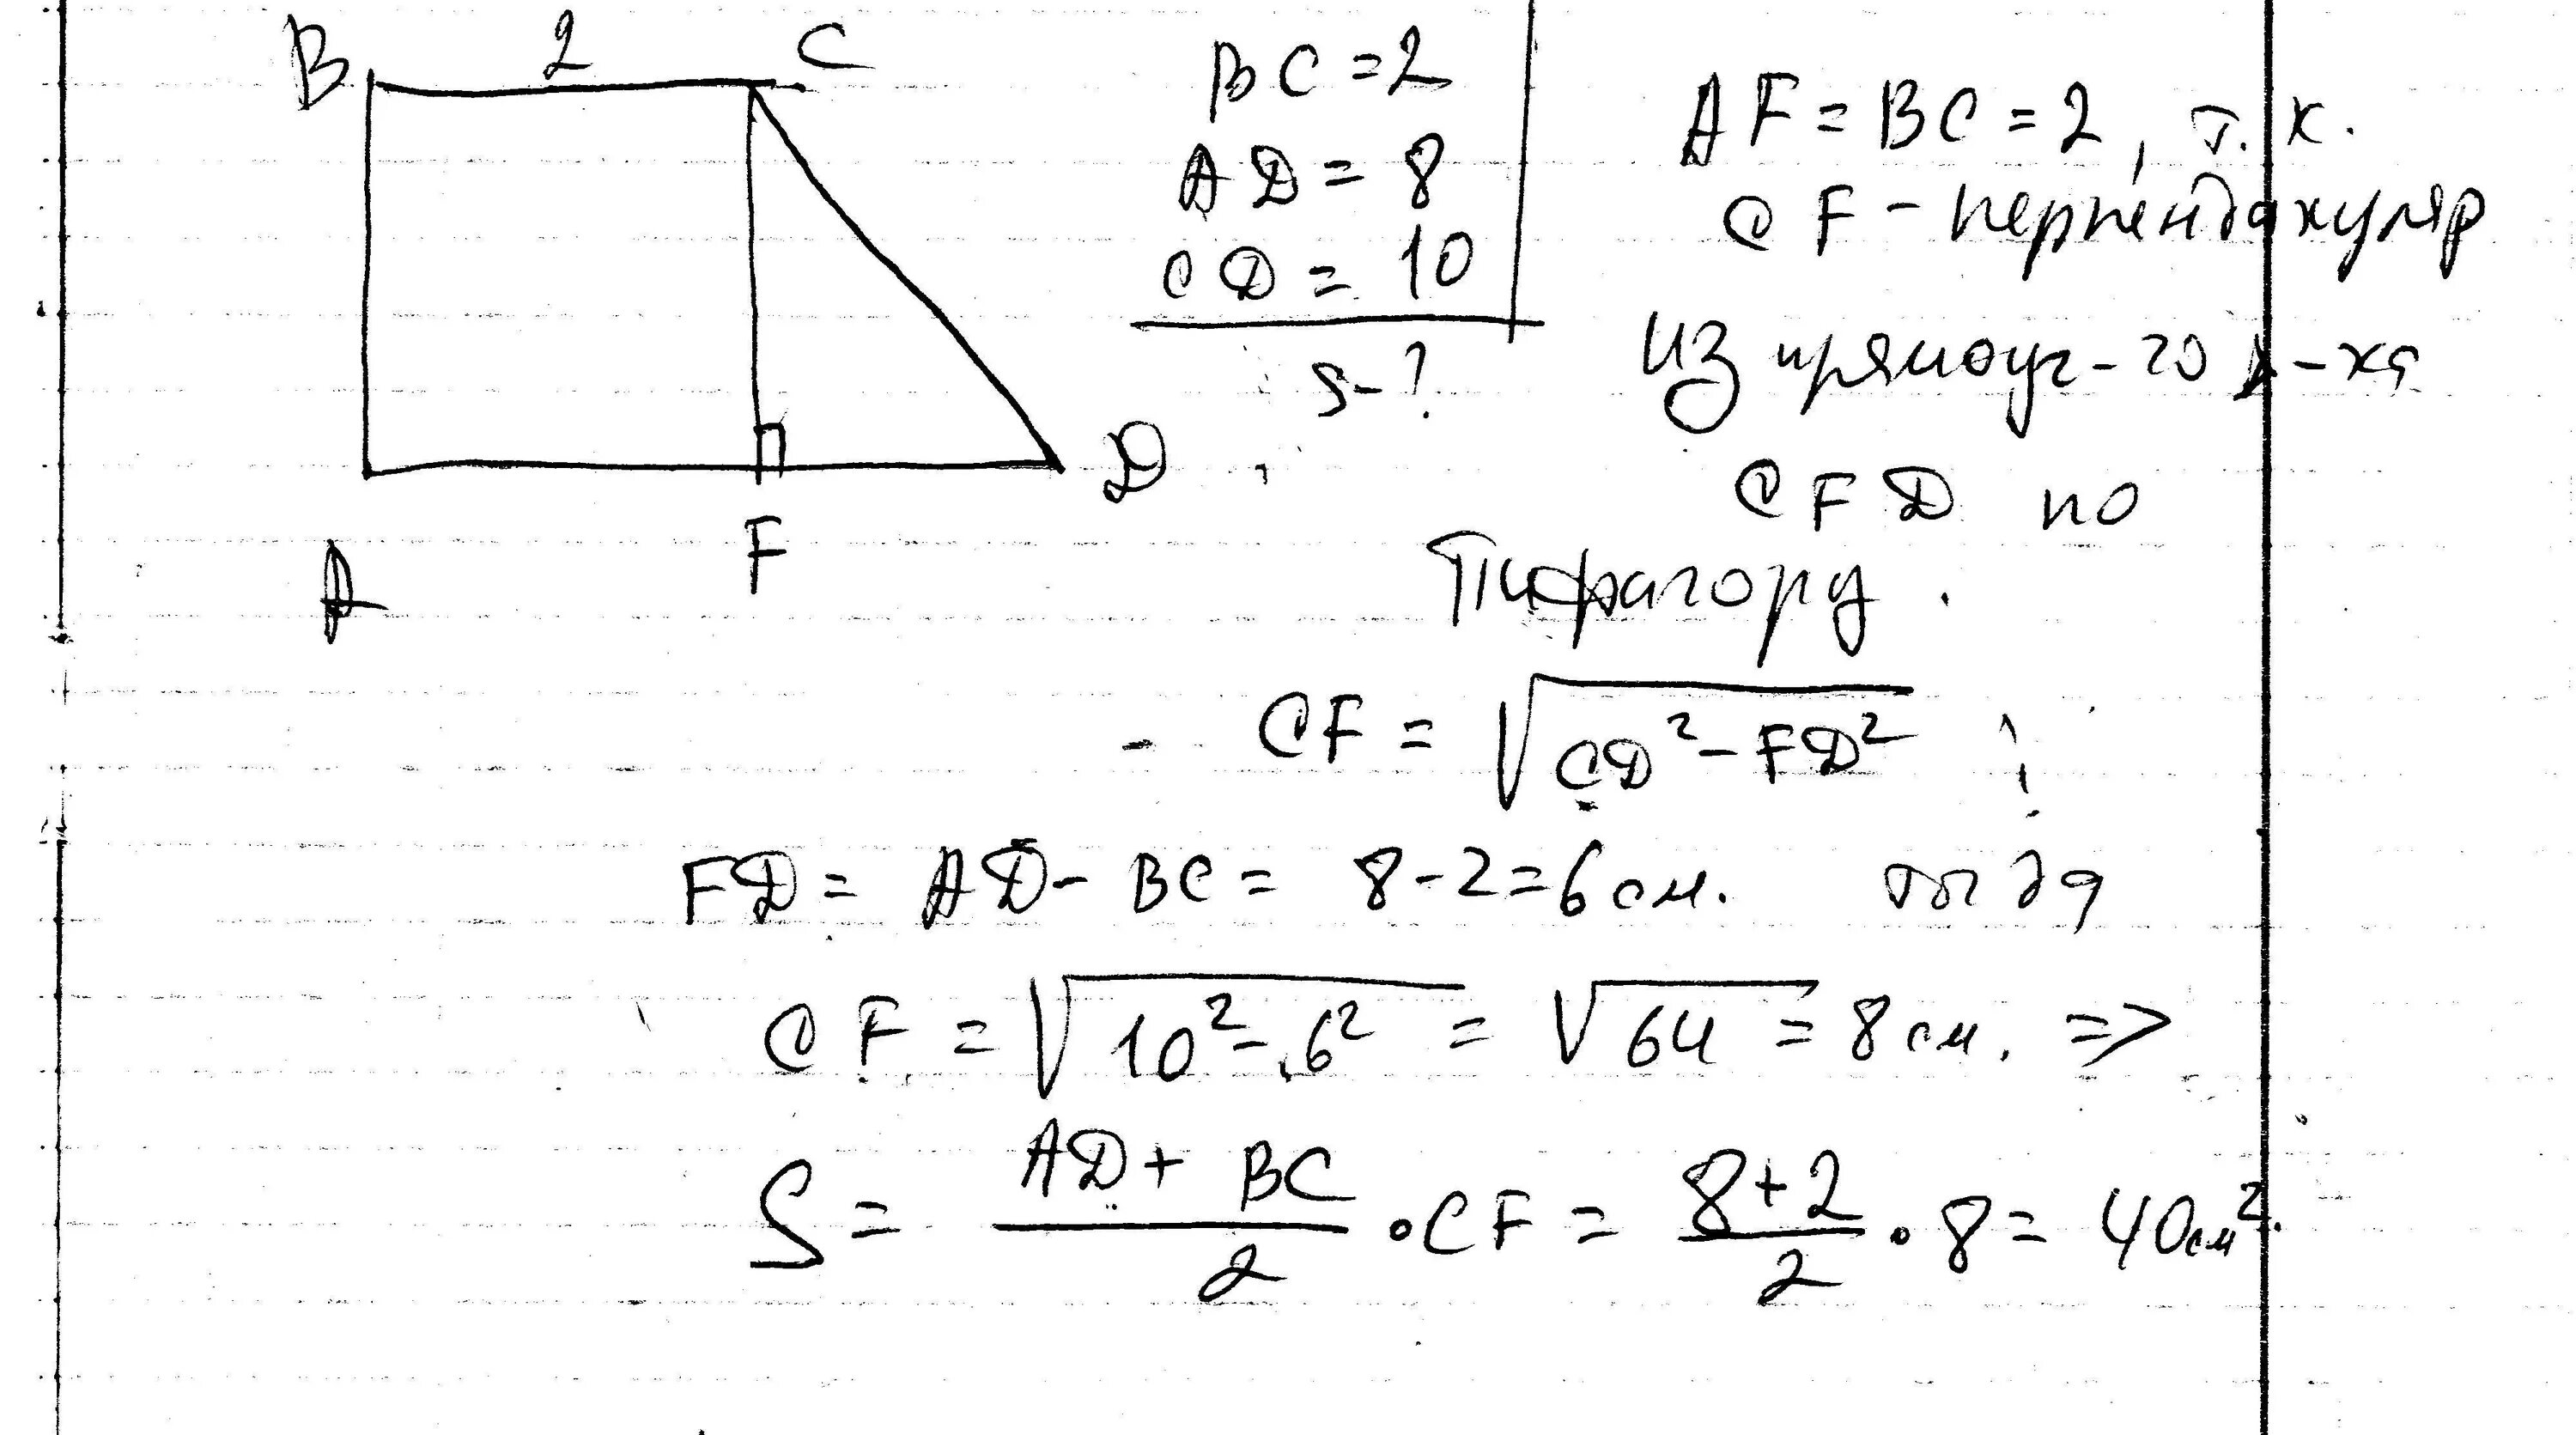 B 2 C
A F D
BC = 2
AD = 8
CD = 10
S - ?
AF = BC = 2, т.к.
CF - перпендикуляр
из прямоуг-го Δ-ка
CFD по
Пифагору.
CF = √(CD² - FD²) ;
FD = AD - BC = 8 - 2 = 6 см. тогда
CF = √(10² - 6²) = √64 = 8 см. =>
S = (AD + BC)/2 · CF = (8 + 2)/2 · 8 = 40 см².